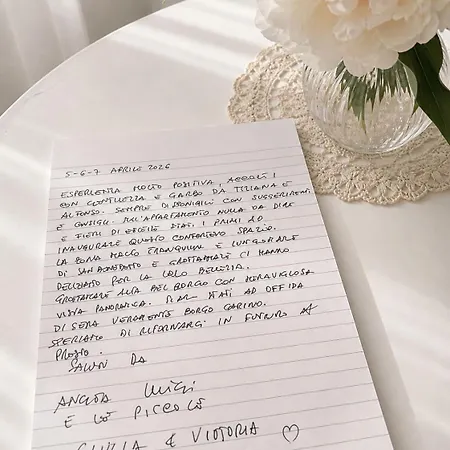 5-6-7 APRILE 2026
ESPERIENZA MOLTO POSITIVA, ACCOLTI
CON GENTILEZZA E GARBO DA TIZIANA E
ALFONSO. SEMPRE DISPONIBILI CON SUGGERIMENTI
E CONSIGLI. SULL'APPARTAMENTO NULLA DA DIRE
E FIERI DI ESSERE STATI I PRIMI AD
INAUGURARE QUESTO CONFORTEVOLE SPAZIO.
LA ZONA MOLTO TRANQUILLA E LUNGOMARE
DI SAN BENEDETTO E GROTTAMMARE CI HANNO
DELIZIATO PER LA LORO BELLEZZA.
GROTTAMMARE ALTA BEL BORGO CON MERAVIGLIOSA
VISTA PANORAMICA. SIAM STATI AD OFFIDA
DI SERA VERAMENTE BORGO CARINO.
SPERIAMO DI RITORNARCI IN FUTURO
PRESTO.
SALUTI DA
LUIGI
E LE PICCOLE
GIULIA & VITTORIA